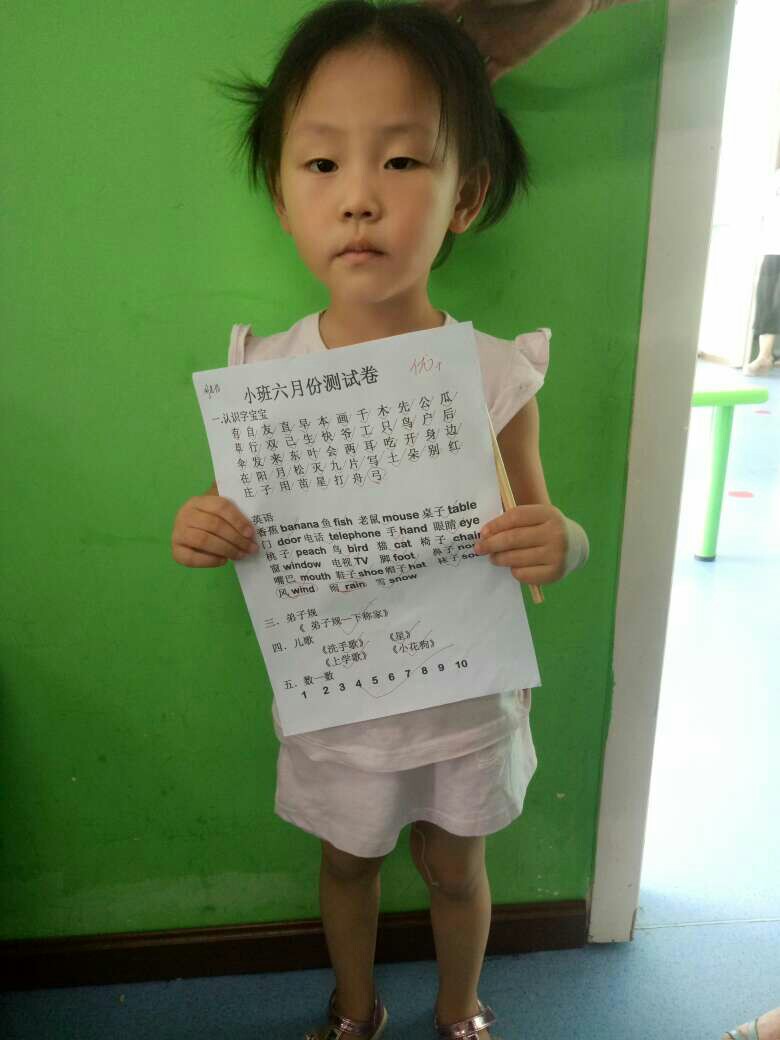 小班六月份测试卷
一.认识字宝宝
有 自 友 直 早 本 画 千 木 先 公 瓜
草 行 双 己 生 快 爷 工 只 鸟 户 后
伞 发 来 东 叶 会 两 耳 吃 开 身 边
在 阳 月 松 灭 九 片 写 土 朵 别 红
庄 子 用 苗 星 打 舟 弓
英语
香蕉 banana 鱼 fish 老鼠 mouse 桌子 table
门 door 电话 telephone 手 hand 眼睛 eye
桃子 peach 鸟 bird 猫 cat 椅子 chair
窗 window 电视 TV 脚 foot 鼻子
嘴巴 mouth 鞋子 shoe 帽子 hat 袜子
风 wind 雨 rain 雪 snow
三. 弟子规
《 弟子规一下称家》
四. 儿歌
《洗手歌》 《星》
《上学歌》 《小花狗》
五. 数一数
1 2 3 4 5 6 7 8 9 10